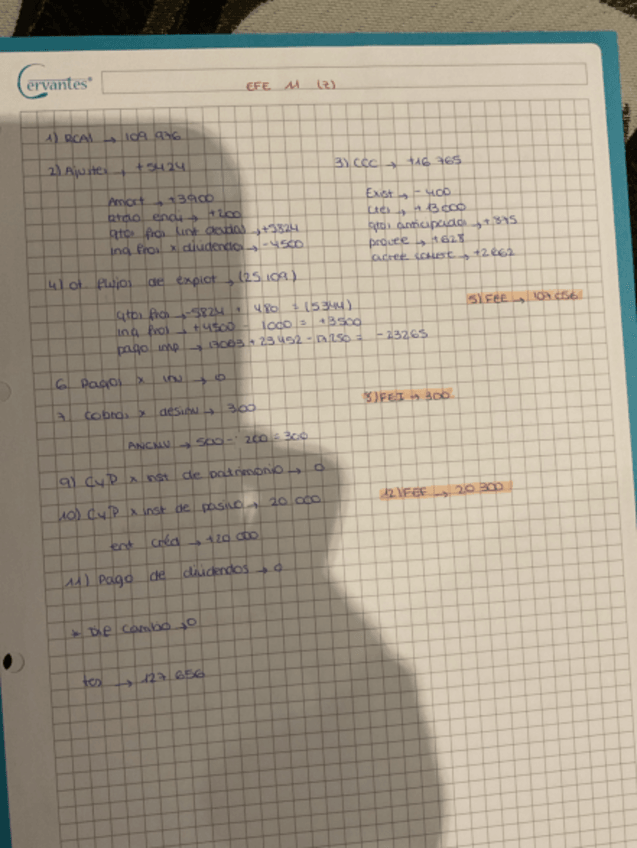 Cervantes®
EFE 11 (2)
1) RCAI → 109 936
2) Ajustes → +5424
Amort → +3900
gtos fros → +5824
ing fros x dividendos → -4500
3) CCC → +16 765
Exist → -400
→ +13000
gtos anticipados → +375
provee → +628
+2862
4) Ot flujos de explot → (25 109)
gtos fros → -5824 + 480 = (5344)
ing fros → +4500 - 1000 = +3500
pago imp → + 23452 - = -23265
5) FEE → 107 056
6. Pagos x inv → 0
7. Cobros x desinv → 300
ANCMV → 500 - 200 = 300
8) FEI → 300
9) C y P x inst de patrimonio → 0
10) C y P x inst de pasivo → 20 000
ent créd → +20 000
11) Pago de dividendos → 0
12) FEF → 20 300
* Dif cambio → 0
→ 127 656